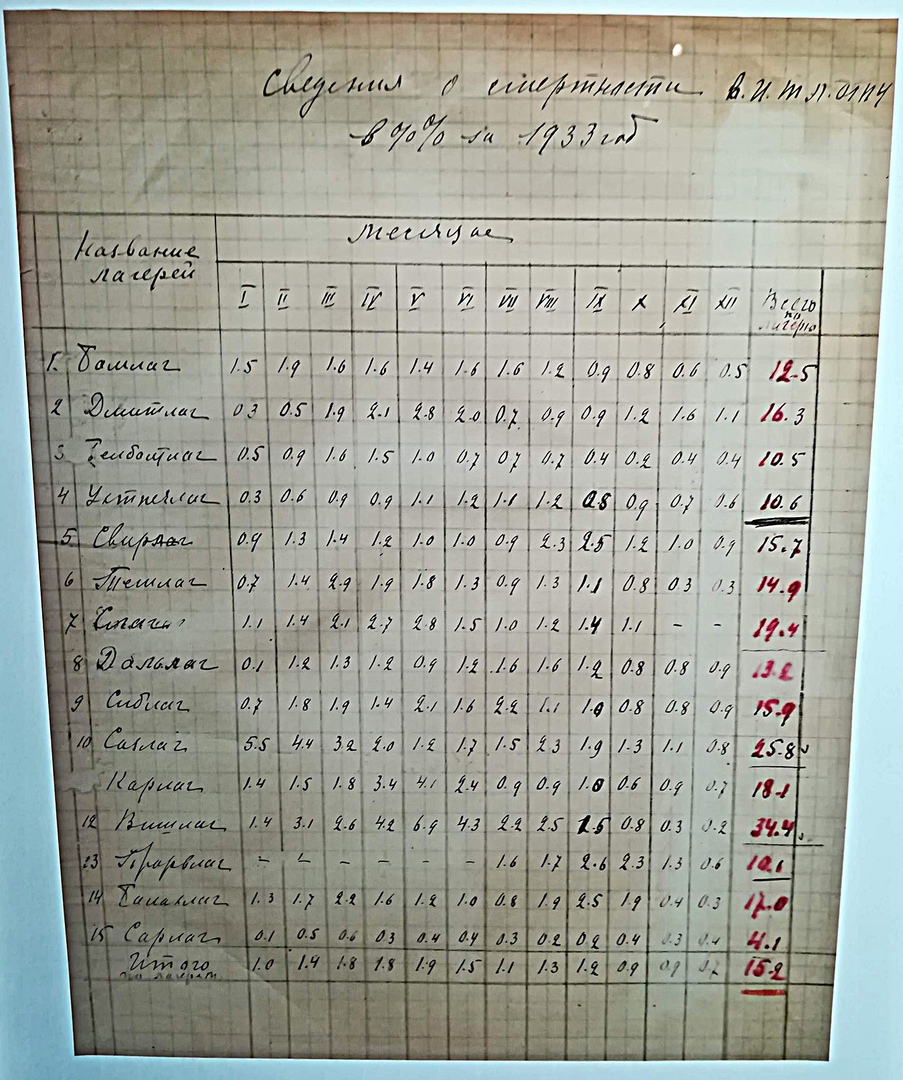 Сведения о смертности в И.Т.Л. ОГПУ
в %% за 1933 год
Название лагерей Месяцы
I II III IV V VI VII VIII IX X XI XII Всего по лагерю
1. Бамлаг 1.5 1.9 1.6 1.6 1.4 1.6 1.6 1.2 0.9 0.8 0.6 0.5 12.5
2 Дмитлаг 0.3 0.5 1.9 2.1 2.8 2.0 0.7 0.9 0.9 1.2 1.6 1.1 16.3
3 Белбалтлаг 0.5 0.9 1.6 1.5 1.0 0.7 0.7 0.7 0.4 0.2 0.4 0.4 10.5
4 Ухтпечлаг 0.3 0.6 0.9 0.9 1.1 1.2 1.1 1.2 0.8 0.9 0.7 1.6 10.6
5 Свирлаг 0.9 1.3 1.4 1.2 1.0 1.0 0.9 2.3 2.5 1.2 1.0 0.9 15.7
6 Темлаг 0.7 1.4 2.9 1.9 1.8 1.3 0.9 1.3 1.1 0.8 0.3 0.3 14.9
7 1.1 1.4 2.1 2.7 2.8 1.5 1.0 1.2 1.4 1.1 - - 19.4
8 Дальлаг 0.1 1.2 1.3 1.2 0.9 1.2 1.6 1.6 1.2 0.8 0.8 0.9 13.2
9 Сиблаг 0.7 1.8 1.9 1.4 2.1 1.6 2.2 1.1 1.9 0.8 0.8 0.9 15.9
10 Сазлаг 5.5 4.4 3.2 2.0 1.2 1.7 1.5 2.3 1.9 1.3 1.1 0.8 25.8
Карлаг 1.4 1.5 1.8 3.4 4.1 2.4 0.9 0.9 1.0 0.6 0.9 0.7 18.1
12 Вишлаг 1.4 3.1 2.6 4.2 6.9 4.3 2.2 2.5 1.5 0.8 0.3 0.2 34.4
13 Прорвлаг - - - - - - 1.6 1.7 2.6 2.3 1.3 0.6 10.1
14 Балахлаг 1.3 1.7 2.2 1.6 1.2 1.0 0.8 1.9 2.5 1.9 0.4 0.3 17.0
15 Сарлаг 0.1 0.5 0.6 0.3 0.4 0.4 0.3 0.2 0.2 0.4 0.3 4.1
Итого по лагерям 1.0 1.4 1.8 1.8 1.9 1.5 1.1 1.3 1.2 0.9 0.9 0.7 15.2